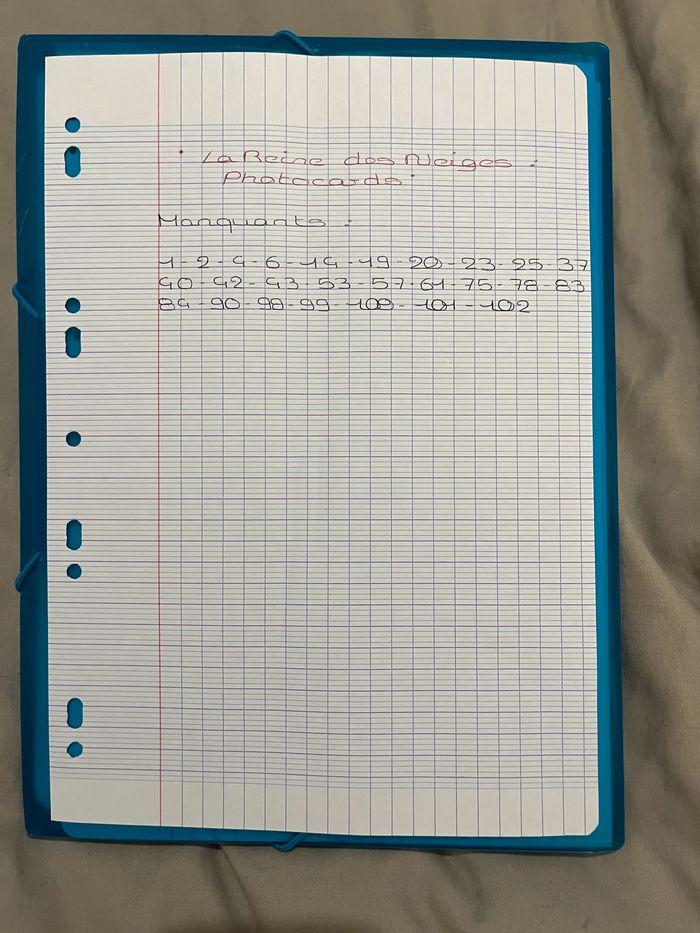 • La Reine des Neiges :
Photocards •
Manquants :
1 - 2 - 4 - 6 - 14 - 19 - 20 - 23 - 25 - 37
40 - 42 - 43 - 53 - 57 - 61 - 75 - 78 - 83
84 - 90 - 98 - 99 - 100 - 101 - 102